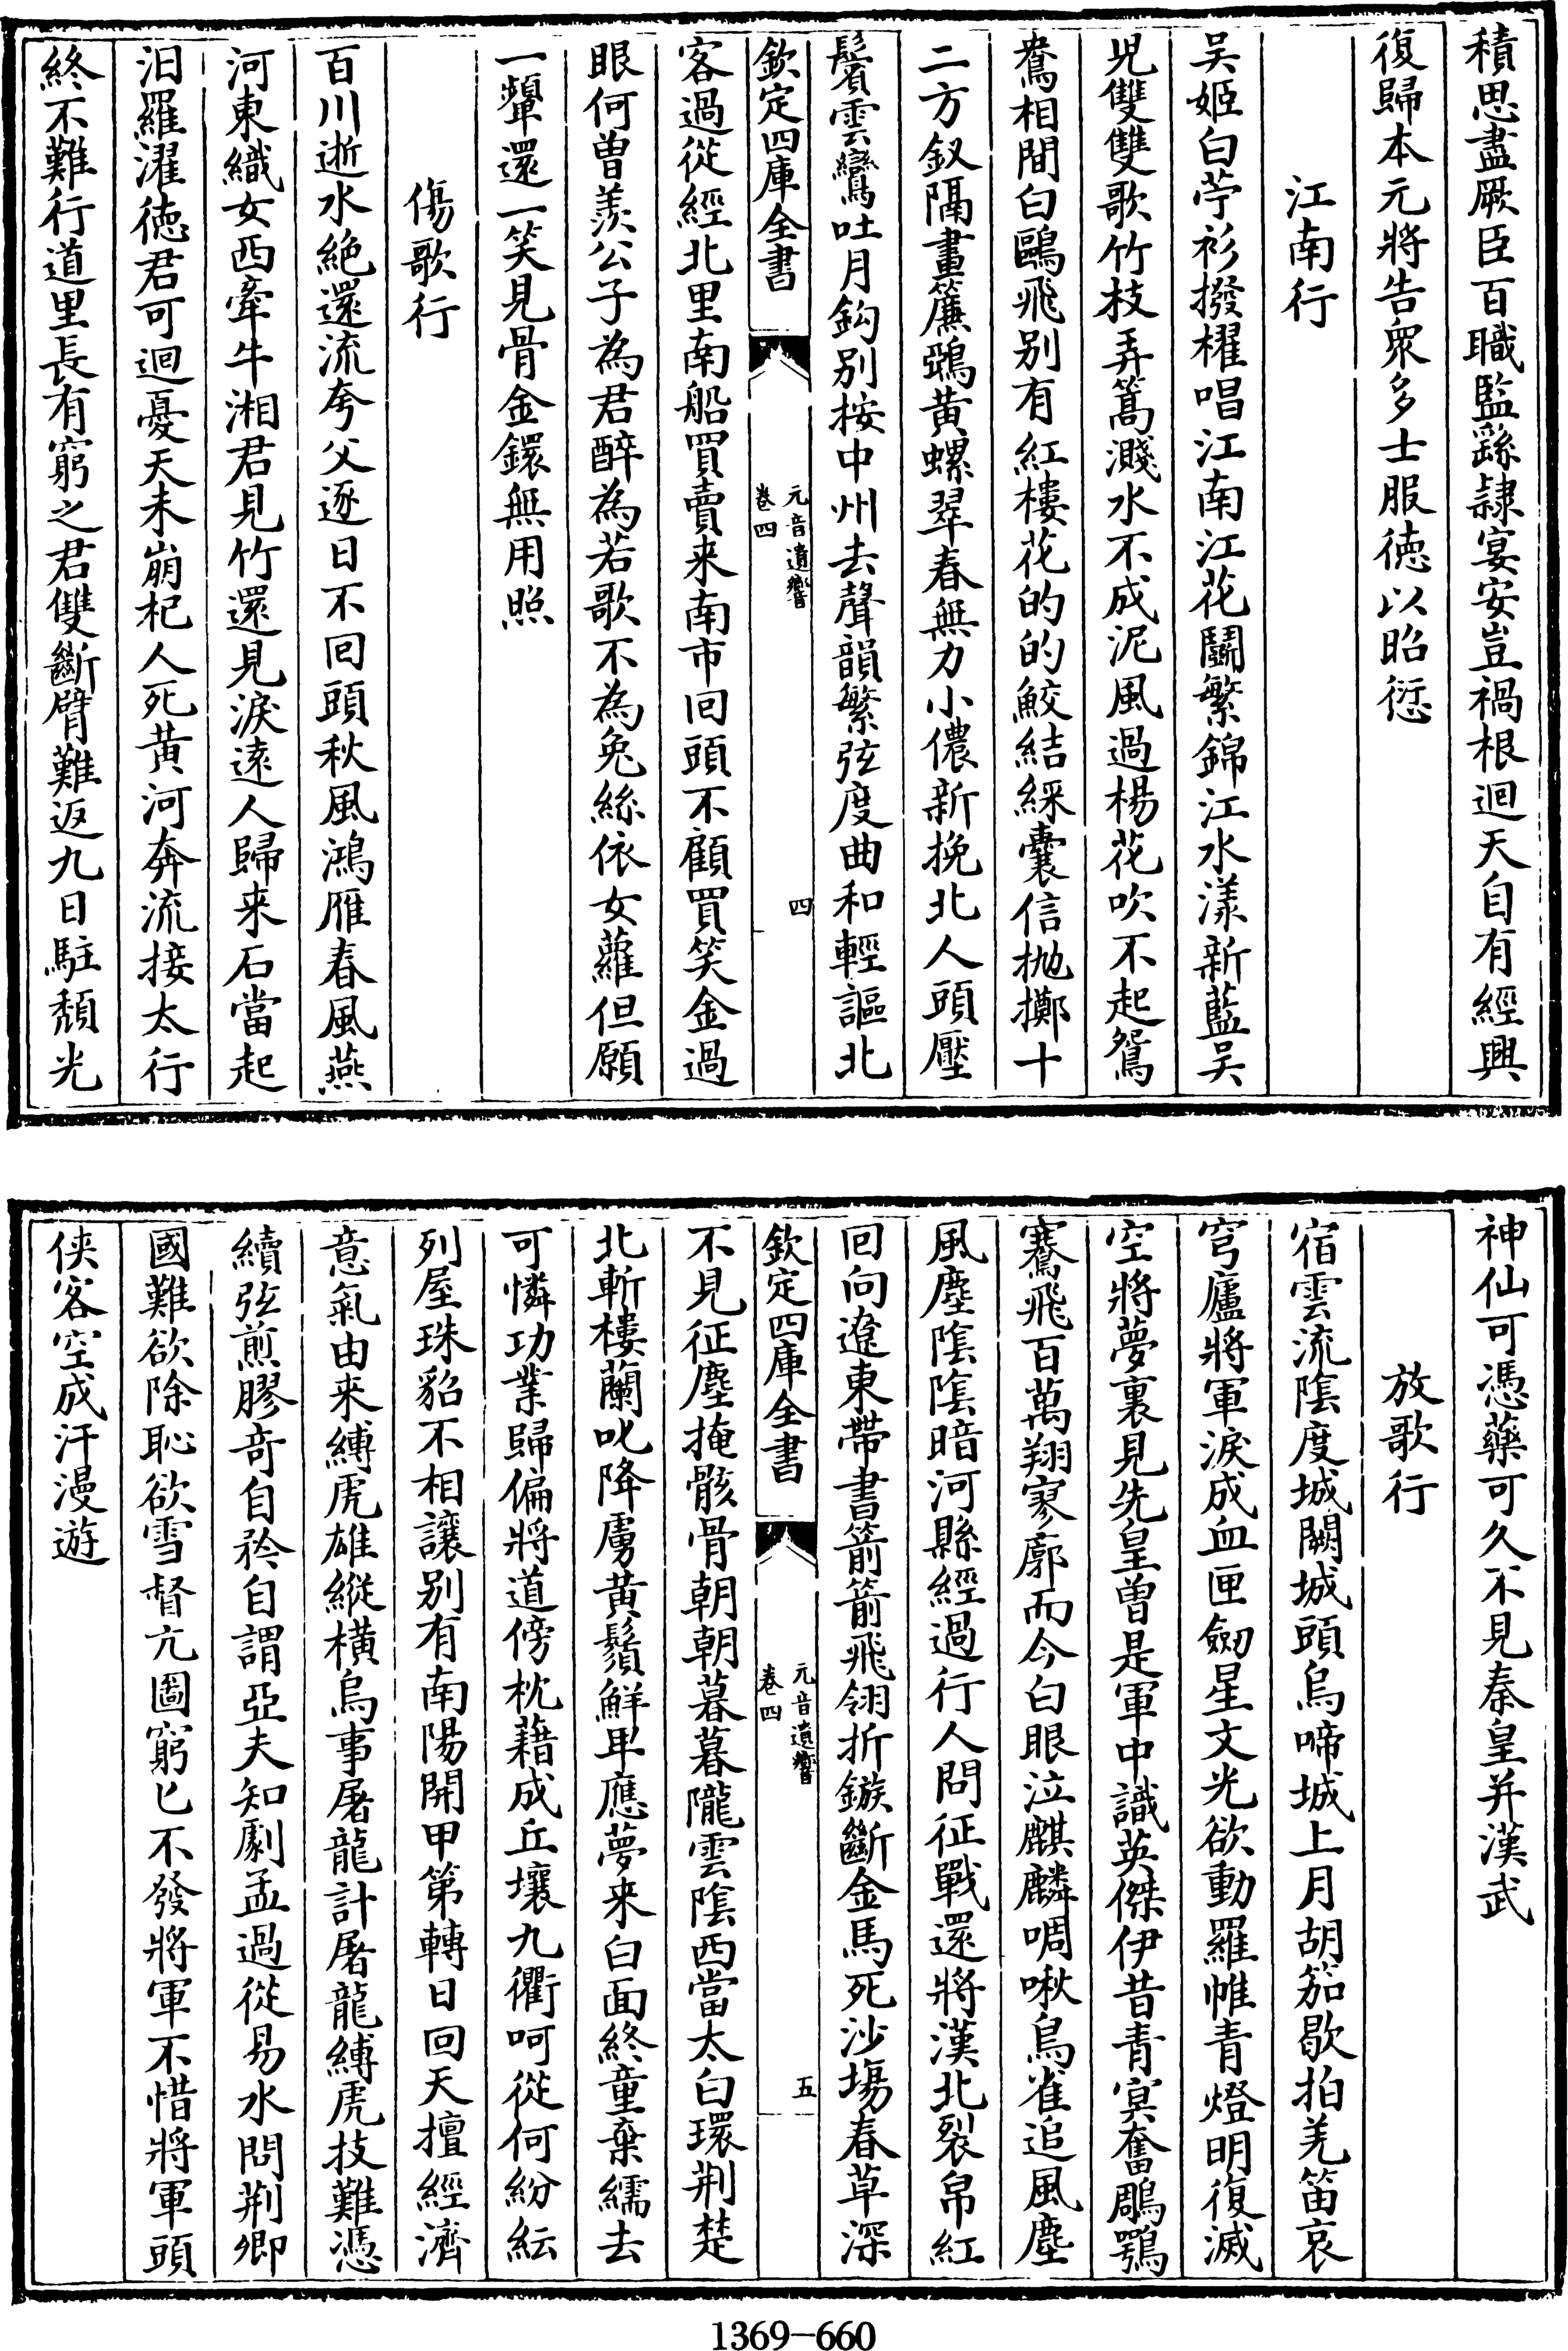 積思盡厥臣百職監繇隷宴安豈禍根迴天自有經興
復歸本元將告衆多士服徳以昭愆
江南行
吴姬白苧衫撥櫂唱江南江花鬭繁錦江水漾新藍吴
兒雙雙歌竹枝弄篙濺水不成泥風過楊花吹不起鴛
鴦相間白鷗飛别有紅樓花的的鮫結綵囊信抛擲十
二方釵隔畫簾鵶黄螺翠春無力小儂新挽北人頭壓
鬢雲鸞吐月鈎别按中州去聲韻繁弦度曲和輕謳北
欽定四庫全書
元音遺響
卷四
四
客過從經北里南船買賣来南市回頭不顧買笑金過
眼何曽羨公子為君醉為若歌不為兔絲依女蘿但願
一顰還一笑見骨金鐶無用照
傷歌行
百川逝水絶還流夸父逐日不回頭秋風鴻雁春風燕
河東織女西牽牛湘君見竹還見淚逺人歸来石當起
汨羅濯徳君可迴憂天未崩杞人死黄河奔流接太行
終不難行道里長有窮之君雙斷臂難返九日駐頽光
神仙可憑藥可久不見秦皇并漢武
放歌行
宿雲流隂度城闕城頭烏啼城上月胡笳歇拍羌笛哀
穹廬將軍淚成血匣劒星文光欲動羅帷青燈明復滅
空將夢裏見先皇曽是軍中識英傑伊昔青冥奮鵰鶚
騫飛百萬翔寥廓而今白眼泣麒麟啁啾鳥雀追風塵
風塵隂隂暗河縣經過行人問征戰還將漢北裂帛紅
回向遼東帶書箭箭飛翎折鏃斷金馬死沙塲春草深
欽定四庫全書
元音遺響
卷四
五
不見征塵掩骸骨朝朝暮暮隴雲隂西當太白環荆楚
北斬樓蘭叱降虜黄鬚鮮卑應夢来白面終童棄繻去
可憐功業歸偏將道傍枕藉成丘壤九衢呵從何紛紜
列屋珠貂不相讓别有南陽開甲第轉日回天擅經濟
意氣由来縛虎雄縱横烏事屠龍計屠龍縛虎技難憑
續弦煎膠奇自矜自謂亞夫知劇孟過從易水問荆卿
國難欲除恥欲雪督亢圖窮匕不發將軍不惜將軍頭
俠客空成汗漫遊
1369-660